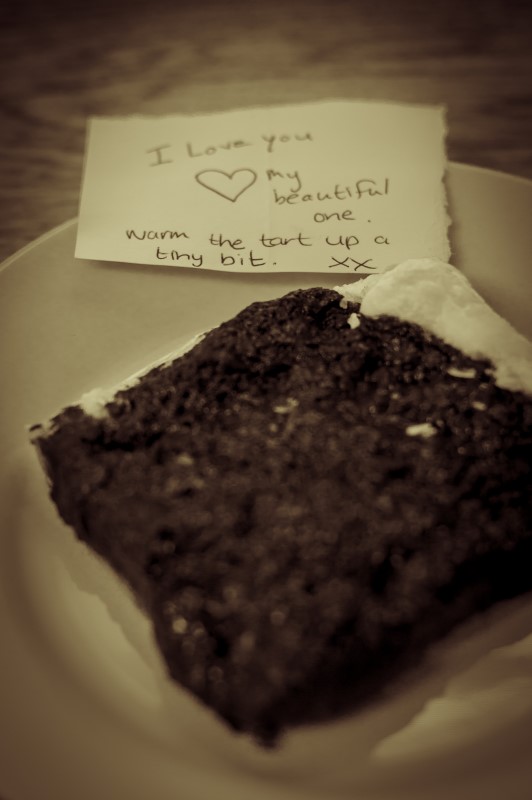 I Love you
my
beautiful
one.
warm the tart up a
tiny bit. xx